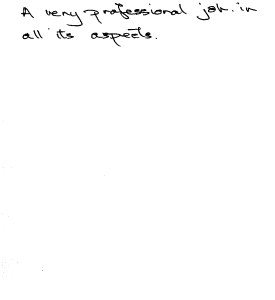 A very professional job in
all its aspects.